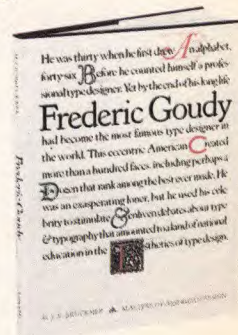 He was thirty when he first drew An alphabet,
forty-six Before he counted himself a profes-
sional type designer. Yet by the end of his long life
Frederic Goudy
had become the most famous type designer in
the world. This eccentric American Created
more than a hundred faces, including perhaps a
Dozen that rank among the best ever made. He
was an exasperating loner, but he used his cele-
brity to stimulate & enliven debates about type
& typography that amounted to a kind of national
education in the esthetics of type design.
D. J. R. BRUCKNER MASTERS OF AMERICAN DESIGN
Frederic Goudy